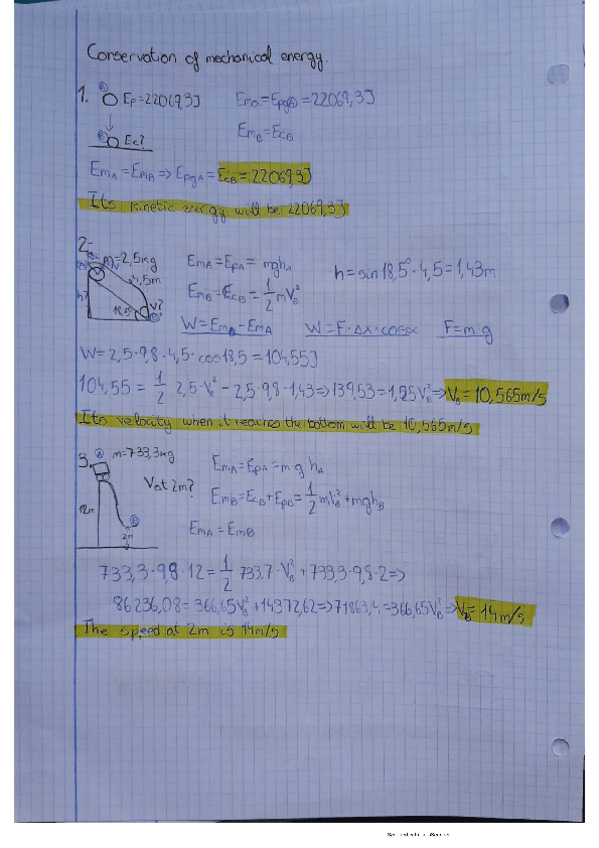 Conservation of mechanical energy.
1. A Ep=22069,3J Ema=EpgA=22069,3J
B Ec? EmB=EcB
EmA=EmB=>EpgA=EcB=22069,3J
Its kinetic energy will be 22069,3J
2-
m=2,5kg EmA=EpA=mghA h=sin18,5°·4,5=1,43m
4,5m
h? 18,5° V? EmB=EcB=1/2mVB²
W=EmB-EmA W=F·Δx·cosα F=m·g
W=2,5·9,8·4,5·cos18,5=104,55J
104,55=1/2·2,5·VB²-2,5·9,8·1,43=>139,53=1,25VB²=>VB=10,565m/s
Its velocity when it reaches the bottom will be 10,565m/s
3. A m=733,3kg EmA=EpA=m·g hA
V at 2m? EmB=EcB+EpB=1/2mVB²+mghB
12m B 2m EmA=EmB
733,3·9,8·12=1/2 733,7·VB²+733,3·9,8·2=>
86236,08=366,65VB²+14372,62=>71863,4=366,65VB²=>VB=14m/s
The speed at 2m is 14m/s